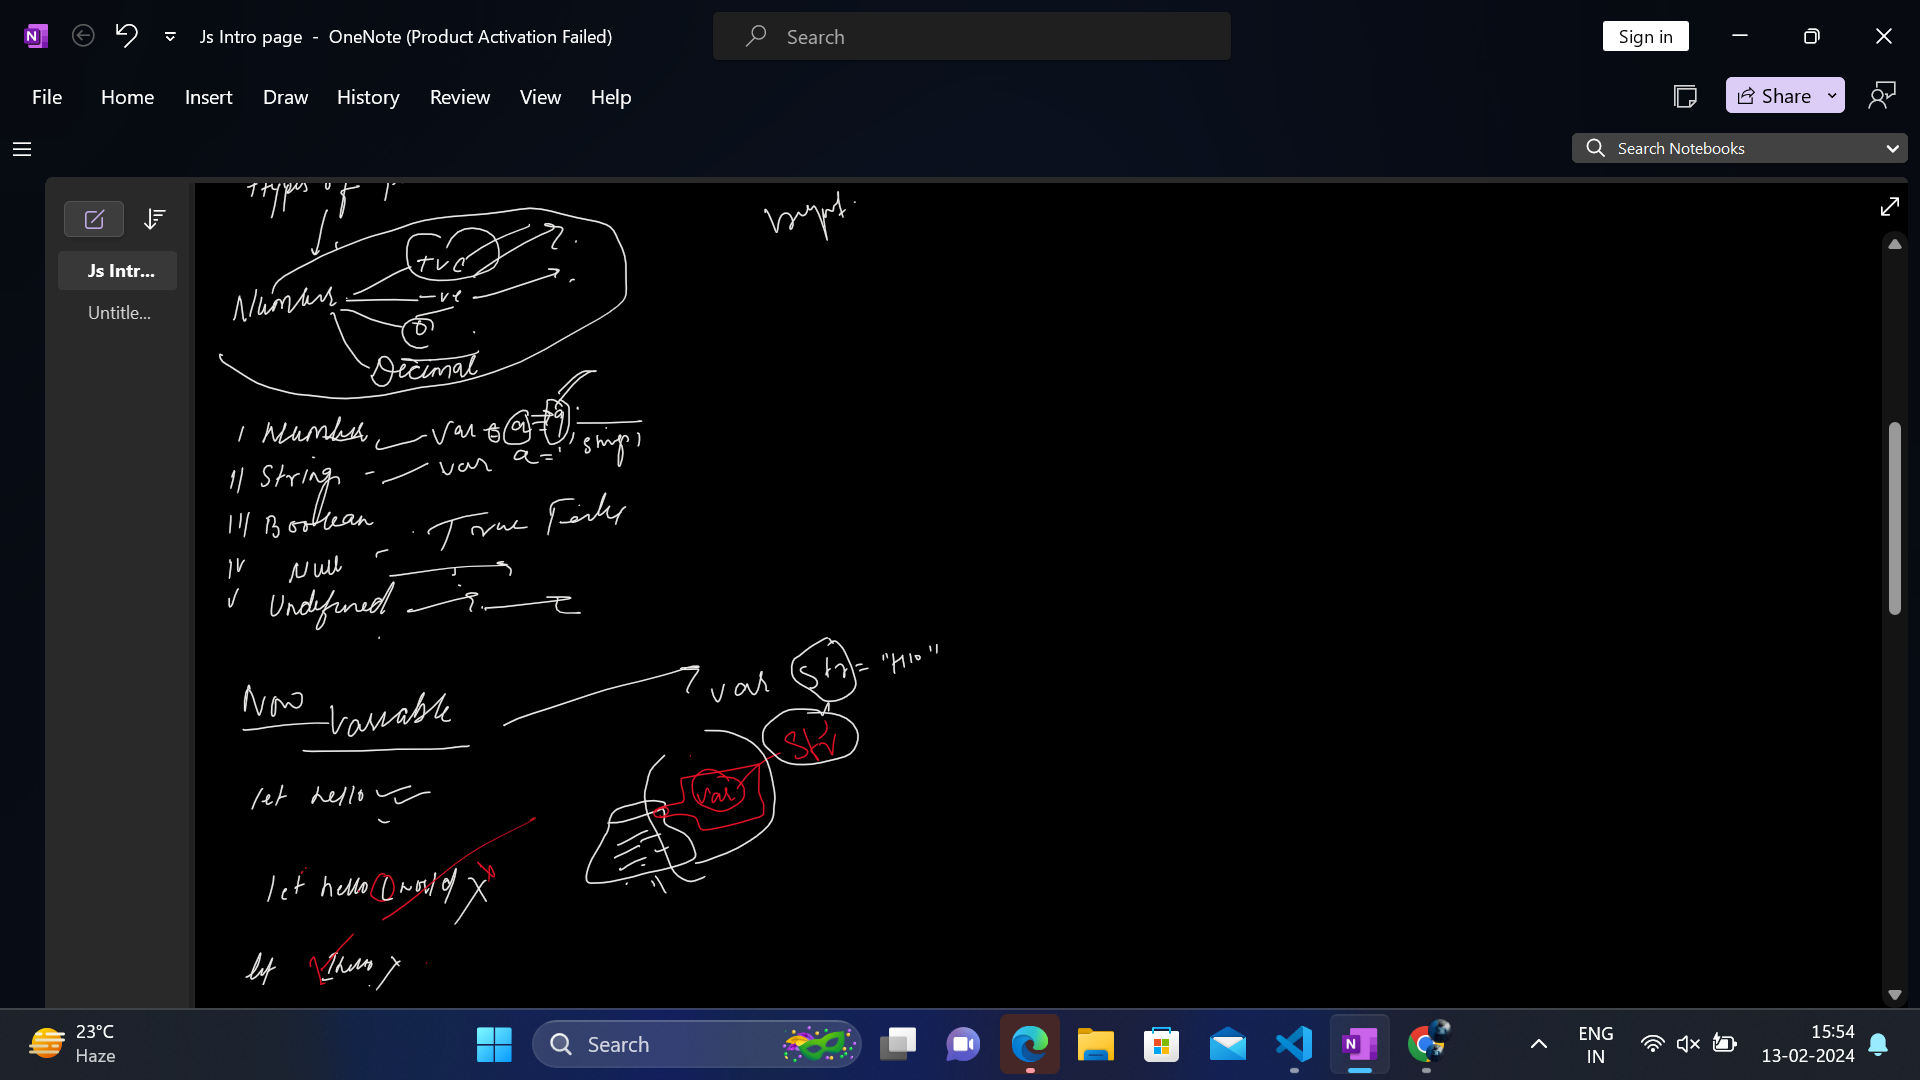 Js Intro page - OneNote (Product Activation Failed)
Search
Sign in
File Home Insert Draw History Review View Help
Share
Search Notebooks
Js Intr...
Untitle...
types of
+ve
Number -ve
0
Decimal
I Number var a = 9;
II String - var a = '
III Boolean True
IV Null
V Undefined
var str = "Hlo"
Now Variable
str
var
let hello
let hello world X
let 1hello X
23°C
Haze
Search
ENG
IN
15:54
13-02-2024